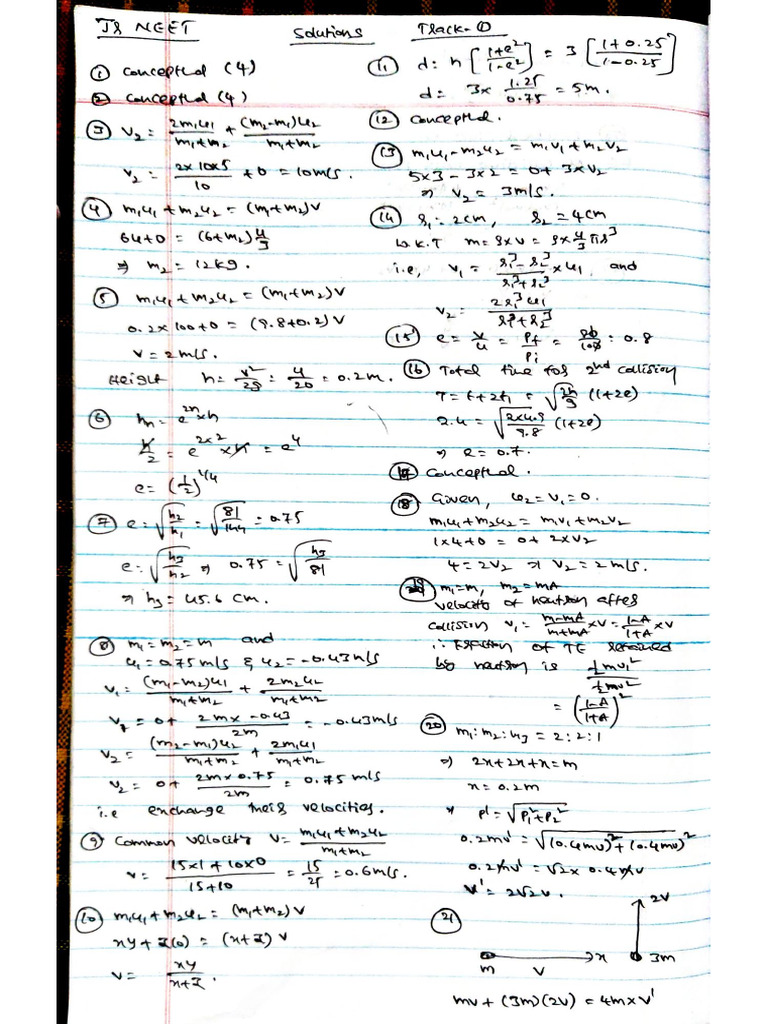 JR NEET Solutions Track-①
① Conceptual (4)
② Conceptual (4)
③ V₂ = 2m₁u₁/m₁+m₂ + (m₂-m₁)u₂/m₁+m₂
V₂ = 2x10x5/10 + 0 = 10m/s.
④ m₁u₁ + m₂u₂ = (m₁+m₂)V
6u+0 = (6+m₂)u/3
⇒ m₂ = 12kg.
⑤ m₁u₁+m₂u₂ = (m₁+m₂)V
0.2x100+0 = (9.8+0.2)V
V = 2m/s.
Height h = V²/2g = 4/20 = 0.2m.
⑥ hₙ = e²ⁿxh
h/2 = e²ˣ² x h = e⁴
e = (1/2)^1/4
⑦ e = √h₂/h₁ = √81/144 = 0.75
e = √h₃/h₂ ⇒ 0.75 = √h₃/81
⇒ h₃ = 45.6 cm.
⑧ m₁=m₂=m and
u₁=0.75m/s & u₂=-0.43m/s
V₁ = (m₁-m₂)u₁/m₁+m₂ + 2m₂u₂/m₁+m₂
V₁ = 0+ 2mx-0.43/2m = -0.43m/s
V₂ = (m₂-m₁)u₂/m₁+m₂ + 2m₁u₁/m₁+m₂
V₂ = 0+ 2mx0.75/2m = 0.75 m/s
i.e exchange their velocities.
⑨ Common velocity V = m₁u₁+m₂u₂/m₁+m₂
V = 15x1+10x0/15+10 = 15/25 = 0.6m/s.
⑩ m₁u₁+m₂u₂ = (m₁+m₂)V
xy+z(0) = (x+z)V
V = xy/x+z.
⑪ d = h[1+e²/1-e²] = 3[1+0.25/1-0.25]
d = 3x 1.25/0.75 = 5m.
⑫ Conceptual.
⑬ m₁u₁-m₂u₂ = m₁v₁+m₂v₂
5x3-3x2 = 0+3xV₂
⇒ V₂ = 3m/s.
⑭ r₁=2cm, r₂=4cm
W.K.T m=ρxv=ρx4/3πr³
i.e, V₁ = r₁³-r₂³/r₁³+r₂³ x u₁ and
V₂ = 2r₁³u₁/r₁³+r₂³
⑮ e = V/u = Pf/Pi = 80/100 = 0.8
⑯ Total time for 2nd collision
T = t+2t₁ = √2h/g (1+2e)
2.4 = √2x4.9/9.8 (1+2e)
⇒ e = 0.7.
⑰ Conceptual.
⑱ Given, u₂=v₁=0.
m₁u₁+m₂u₂ = m₁v₁+m₂v₂
1x4+0 = 0+2xV₂
4=2V₂ ⇒ V₂=2m/s.
⑲ m₁=m, m₂=mA
velocity of neutron after
collision V₁ = m-mA/m+mA xV = 1-A/1+A xV
∴ Fraction of TE retained
by neutron is ½mv₁²/½mv²
= (1-A/1+A)²
⑳ m₁:m₂:m₃ = 2:2:1
⇒ 2x+2x+x=m
x=0.2m
⇒ P' = √P₁²+P₂²
0.2mv' = √(0.4mv)²+(0.4mv)²
0.2mv' = √2x0.4mv
V' = 2√2v.
㉑ 2V
m V x 3m
mv+(3m)(2v) = 4mxV'